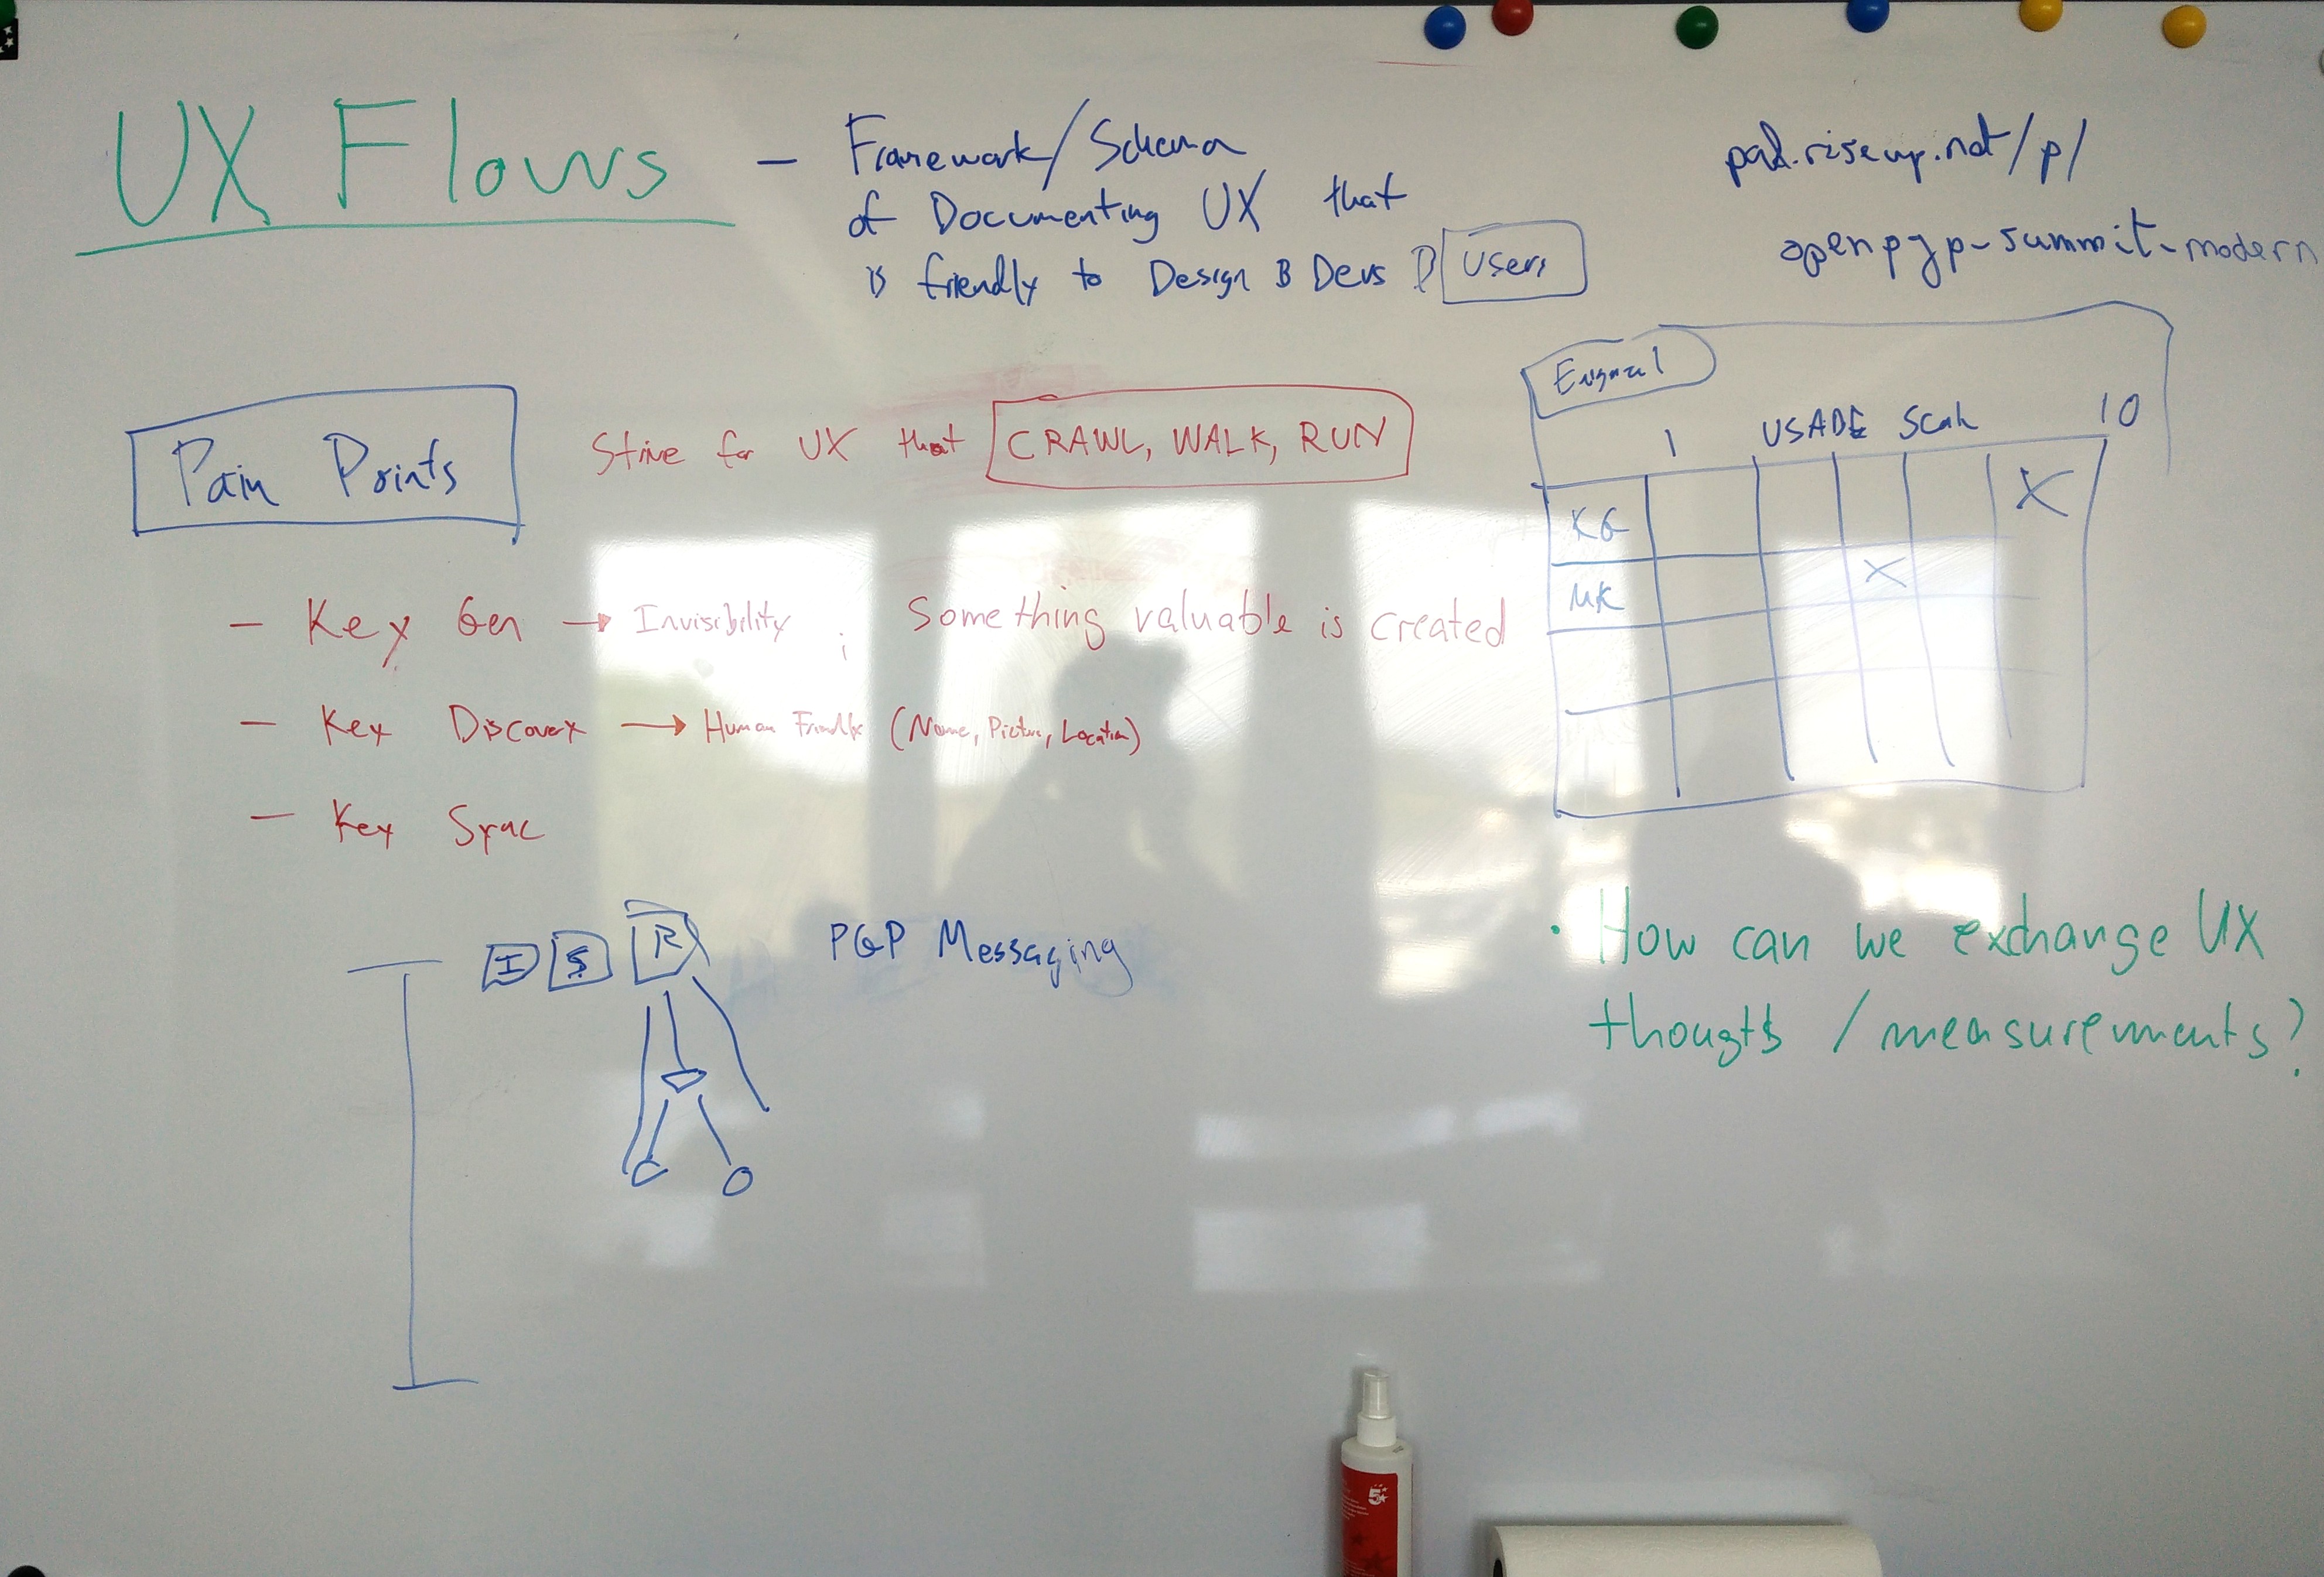 UX Flows
– Framework/Schema
of Documenting UX that
is friendly to Design & Devs
Users
pad.riseup.net/p/
openpgp-summit-modern
Pain Points
Strive for UX that CRAWL, WALK, RUN
– Key Gen → Invisibility ; Something valuable is created
– Key Discovery → Human Friendly (Name, Picture, Location)
– Key Sync
1
10
KG X
MK X
I S R
PGP Messaging
• How can we exchange UX
thougts / measurements?
5